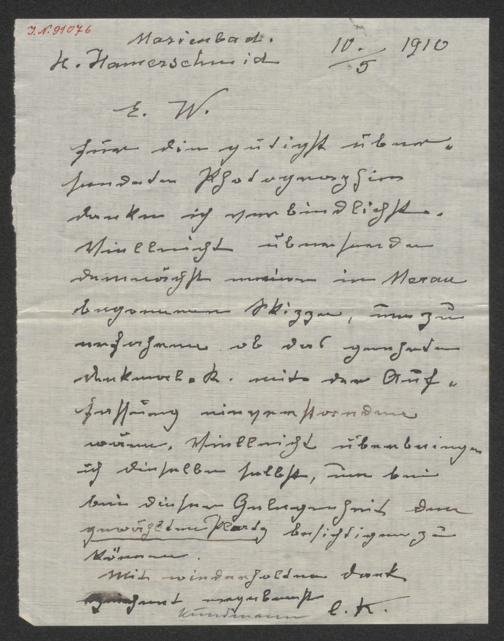 J.N. 91076
Marienbad.
H. Hamerschmid 10./5 1910
E. W.
Für die gütigst über-
sendete Photographie
danke ich verbindlichst.
Vielleicht übersende
demnächst meine in Meran
begonnene Skizze, um zu
erfahren ob das geehrte
Denkmal. K. mit der Auf-
fassung einverstanden
wäre. Vielleicht überbringe
ich dieselbe selbst, um bei
bei dieser Gelegenheit den
gewählten Platz besichtigen zu
können.
Mit wiederholten Dank
zeichnet ergebenst
Kundmann C. K.